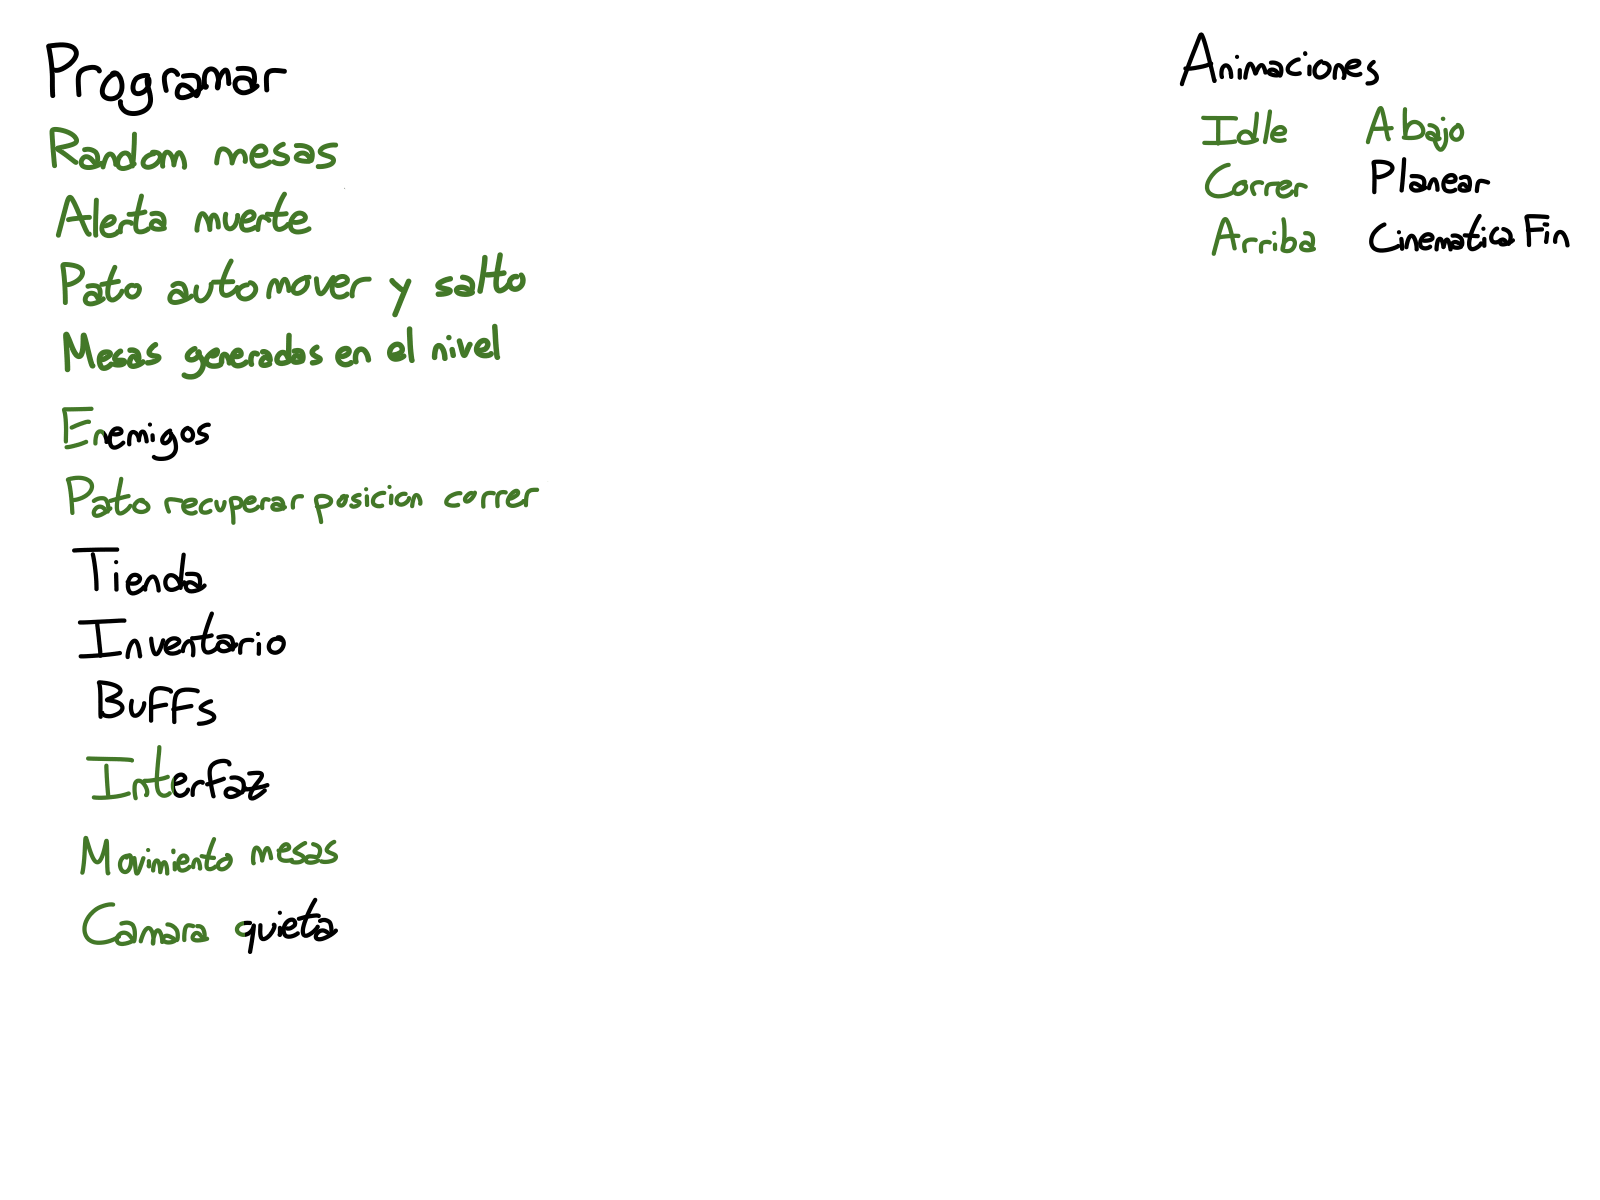 Programar
Random mesas
Alerta muerte
Pato auto mover y salto
Mesas generadas en el nivel
Enemigos
Pato recuperar posicion correr
Tienda
Inventario
Buffs
Interfaz
Movimiento mesas
Camara quieta
Animaciones
Idle Abajo
Correr Planear
Arriba Cinematica Fin